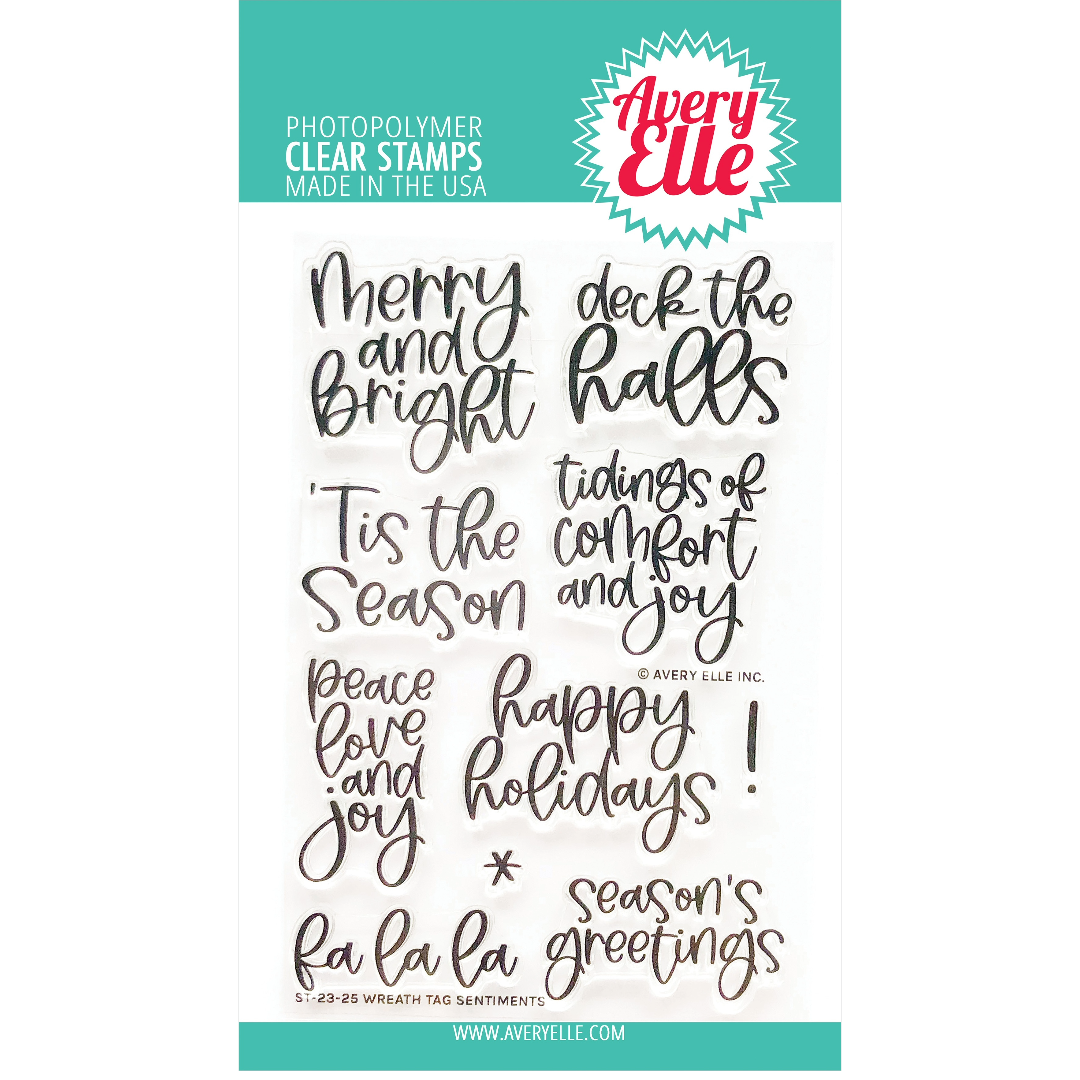 PHOTOPOLYMER
CLEAR STAMPS
MADE IN THE USA
Avery
Elle
merry
and
Bright
deck the
halls
'Tis the
Season
tidings of
comfort
and joy
© AVERY ELLE INC.
peace
love
and
joy
happy
holidays
!
*
fa la la
season's
greetings
ST-23-25 WREATH TAG SENTIMENTS
WWW.AVERYELLE.COM